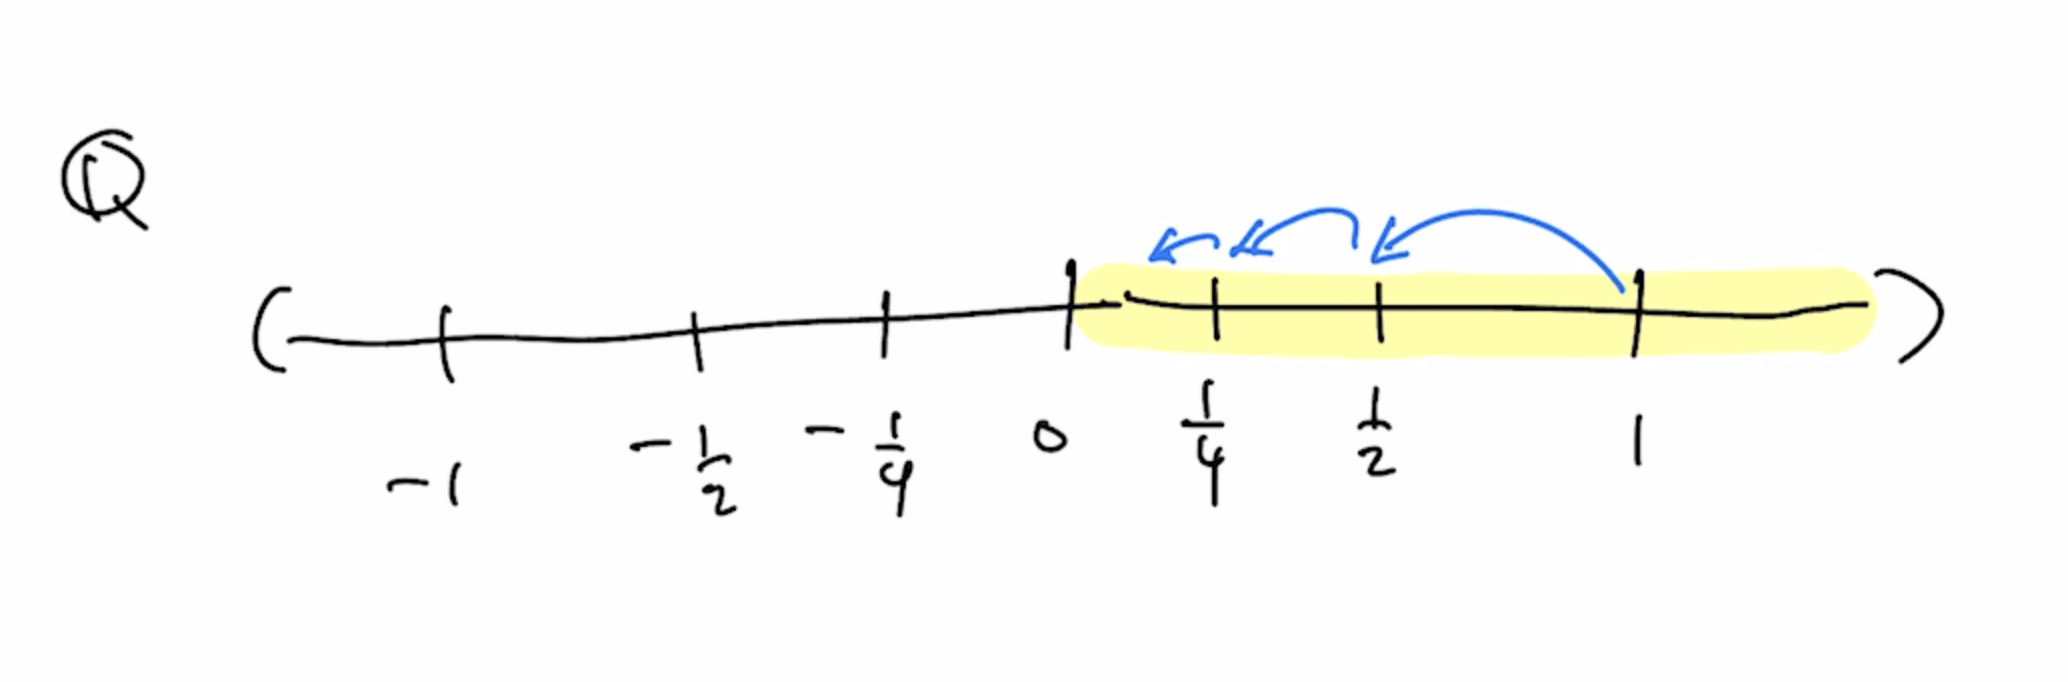 ℚ
-1 -1/2 -1/4 0 1/4 1/2 1